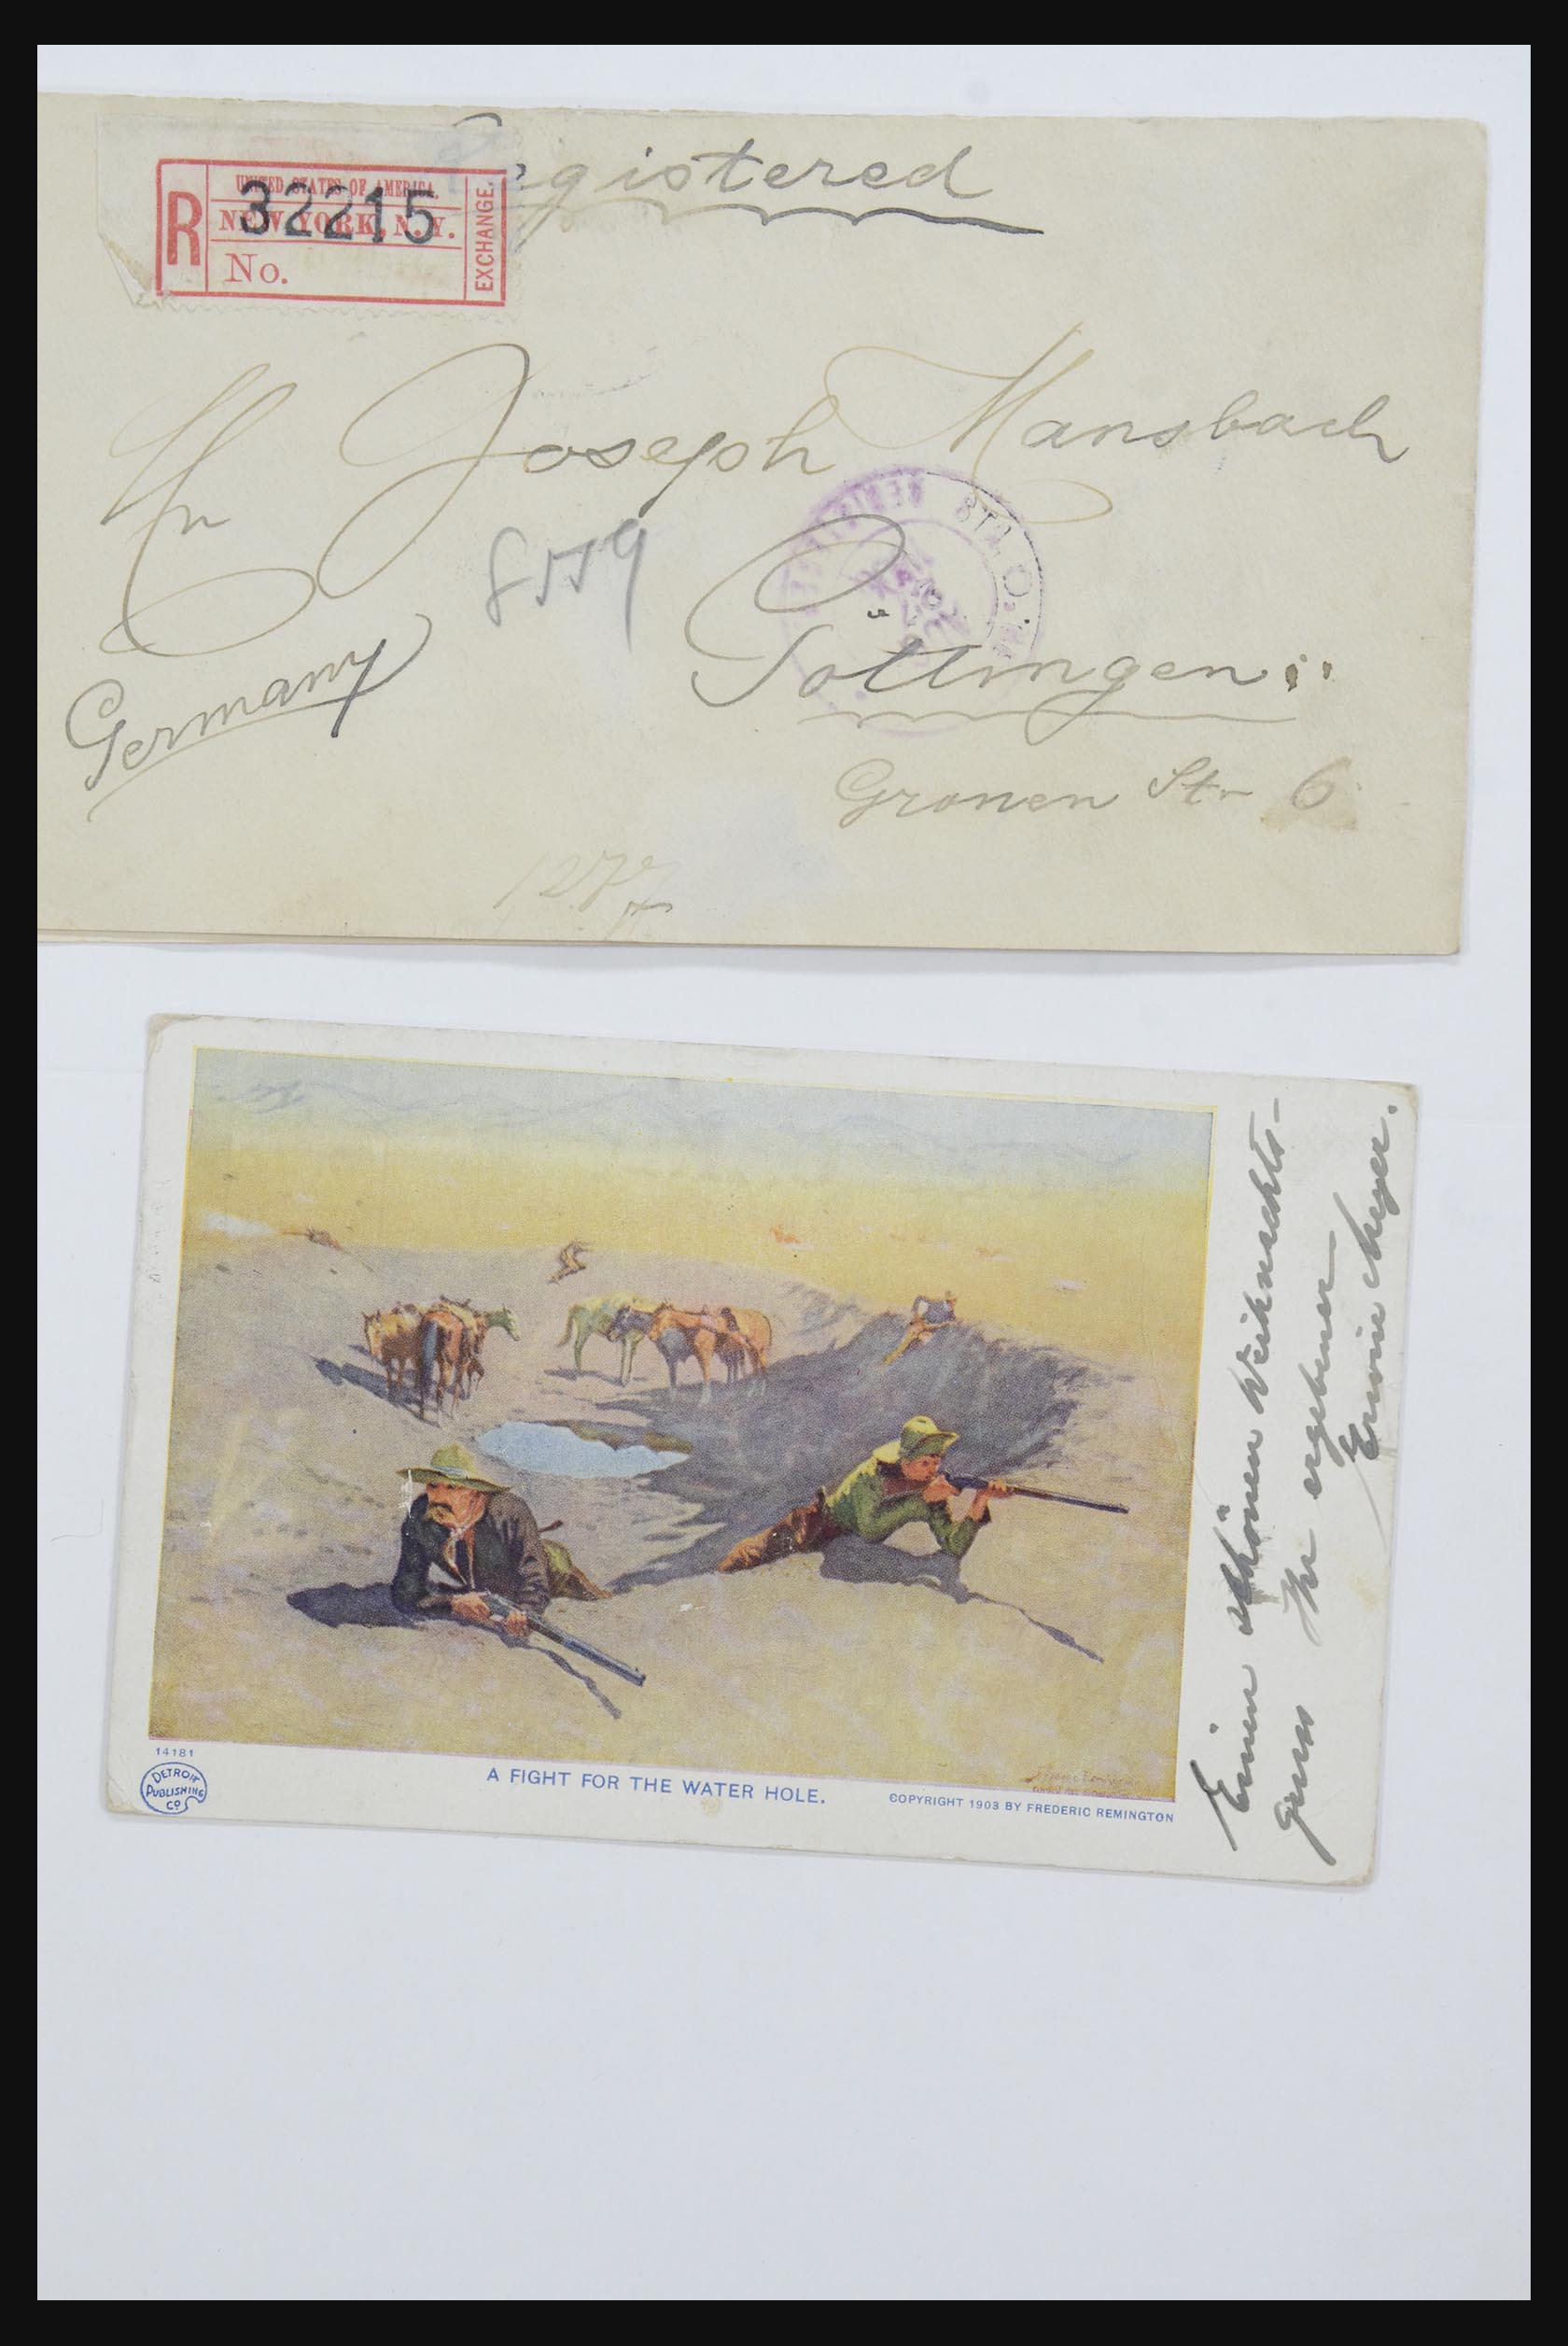 Registered
R
UNITED STATES OF AMERICA.
NEW YORK, N.Y.
32215
No.
EXCHANGE.
Hr Joseph Mansbach
8559
STA. O
Göttingen
Germany
Gronen Str 6
1277
14181
DETROIT
PUBLISHING
CO
A FIGHT FOR THE WATER HOLE.
COPYRIGHT 1903 BY FREDERIC REMINGTON
Einen schönen Weihnachts-
gruss Ihr ergebener
Erwin Meyer.